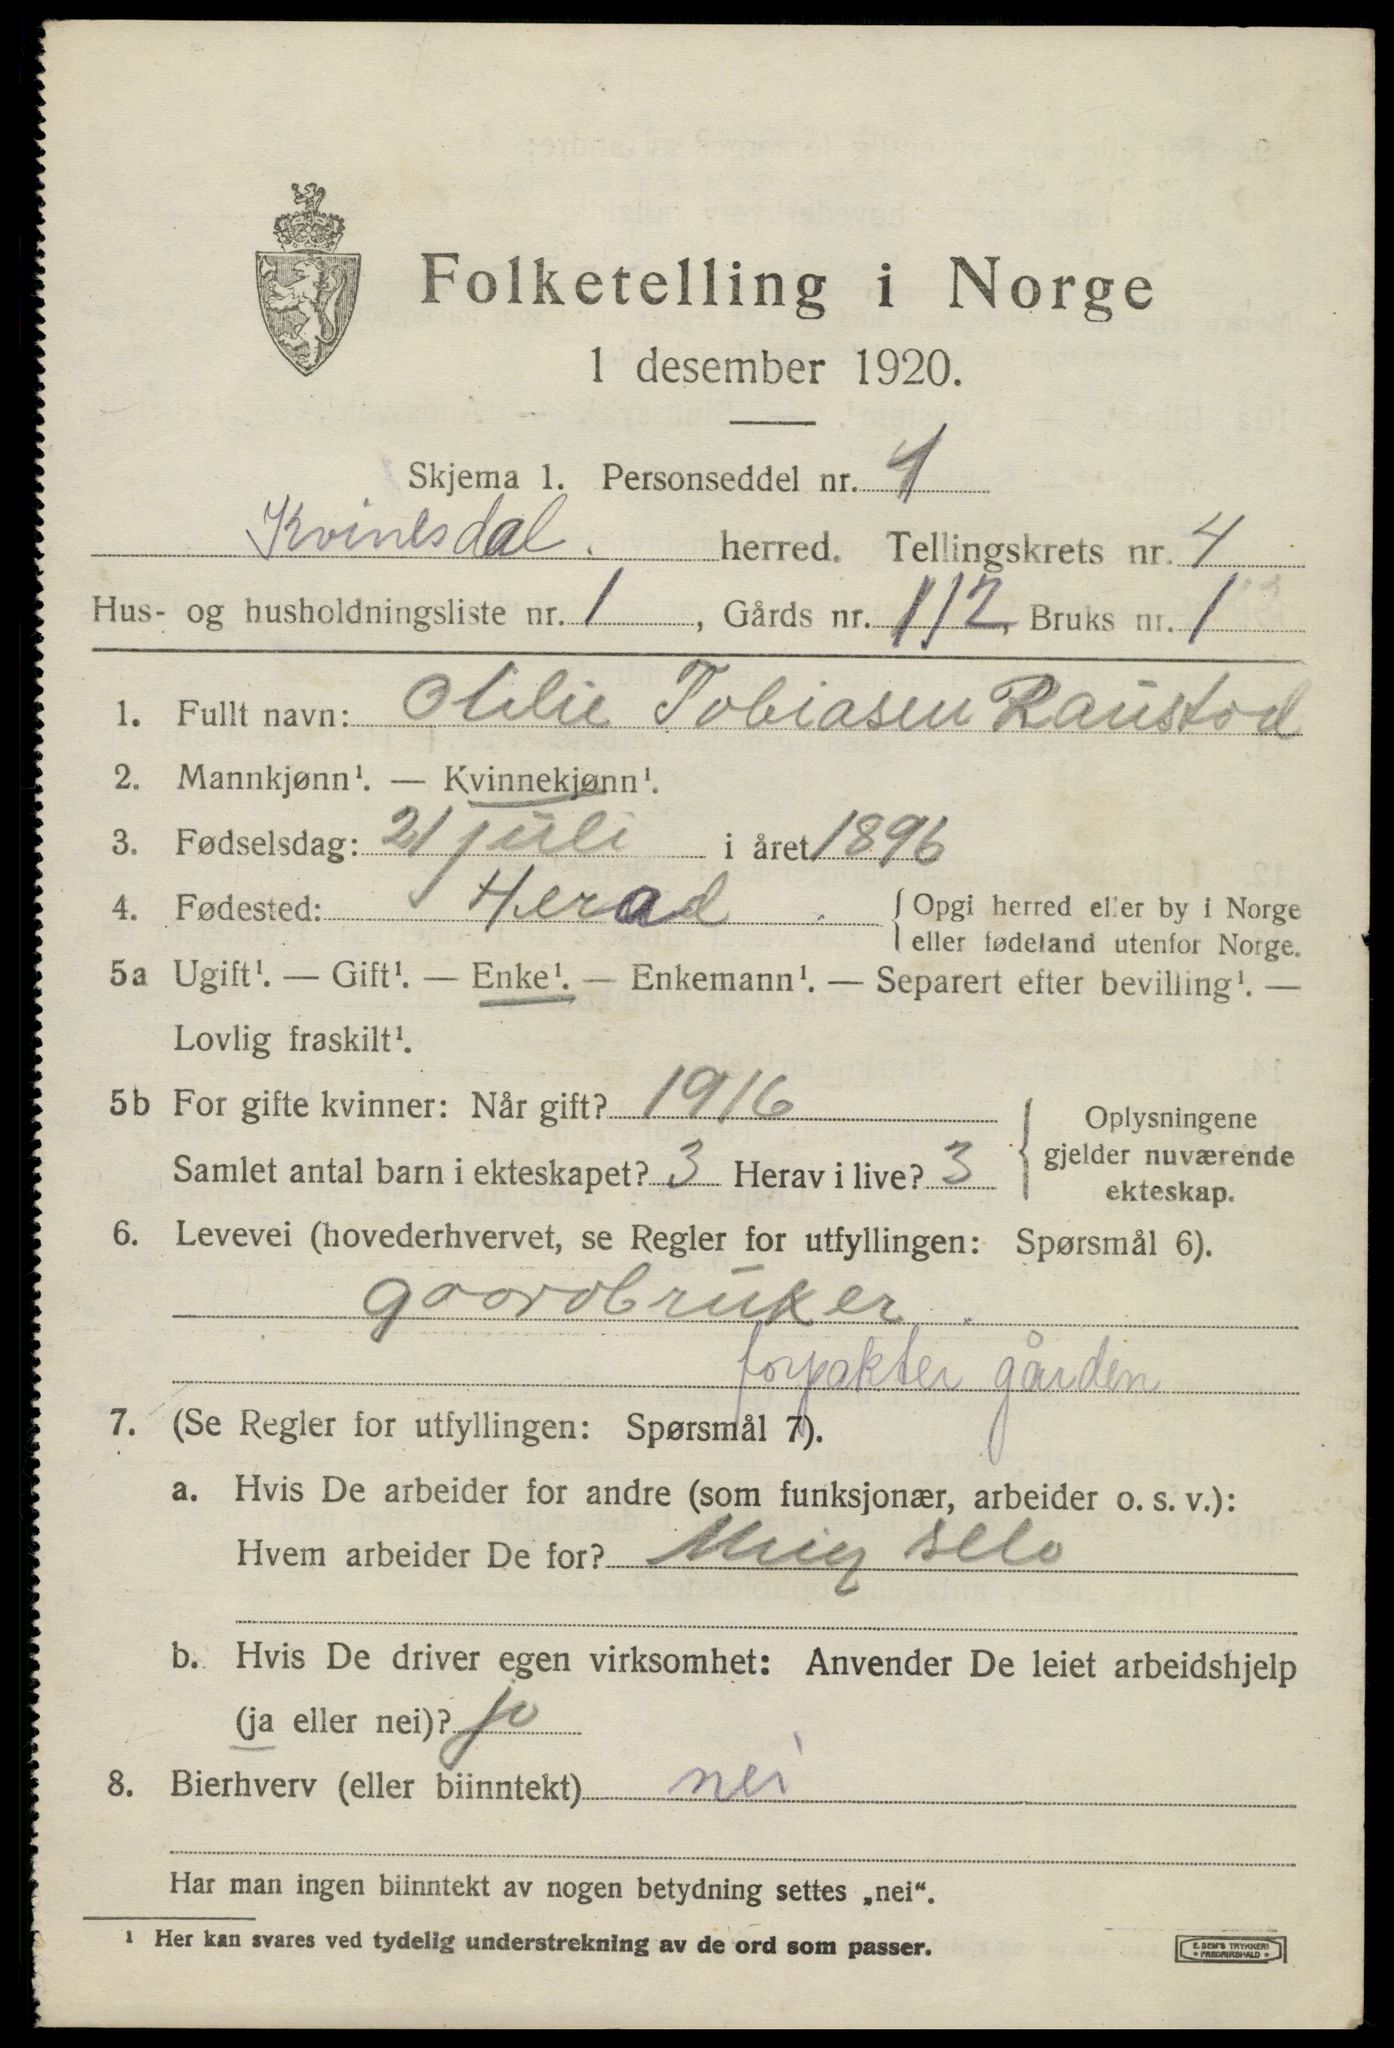 Folketelling i Norge
1 desember 1920.
Skjema 1. Personseddel nr. 4
Kvinesdal. herred. Tellingskrets nr. 4
Hus- og husholdningsliste nr. 1, Gårds nr. 112, Bruks nr. 1
1. Fullt navn: Otilie Tobiasen Raustod
2. Mannkjønn¹. — Kvinnekjønn¹.
3. Fødselsdag: 21 juli i året 1896
4. Fødested: Herad { Opgi herred eller by i Norge
eller fødeland utenfor Norge.
5a Ugift¹. — Gift¹. — Enke¹. — Enkemann¹. — Separert efter bevilling¹. —
Lovlig fraskilt¹.
5b For gifte kvinner: Når gift? 1916
Samlet antal barn i ekteskapet? 3 Herav i live? 3
{ Oplysningene
gjelder nuværende
ekteskap.
6. Levevei (hovederhvervet, se Regler for utfyllingen: Spørsmål 6).
goordbruker.
forpakter gården
7. (Se Regler for utfyllingen: Spørsmål 7).
a. Hvis De arbeider for andre (som funksjonær, arbeider o. s. v.):
Hvem arbeider De for? Mig selv
b. Hvis De driver egen virksomhet: Anvender De leiet arbeidshjelp
(ja eller nei)? jo
8. Bierhverv (eller biinntekt) nei
Har man ingen biinntekt av nogen betydning settes „nei“.
¹ Her kan svares ved tydelig understrekning av de ord som passer.
E. SEM'S TRYKKERI
• FREDRIKSHALD •